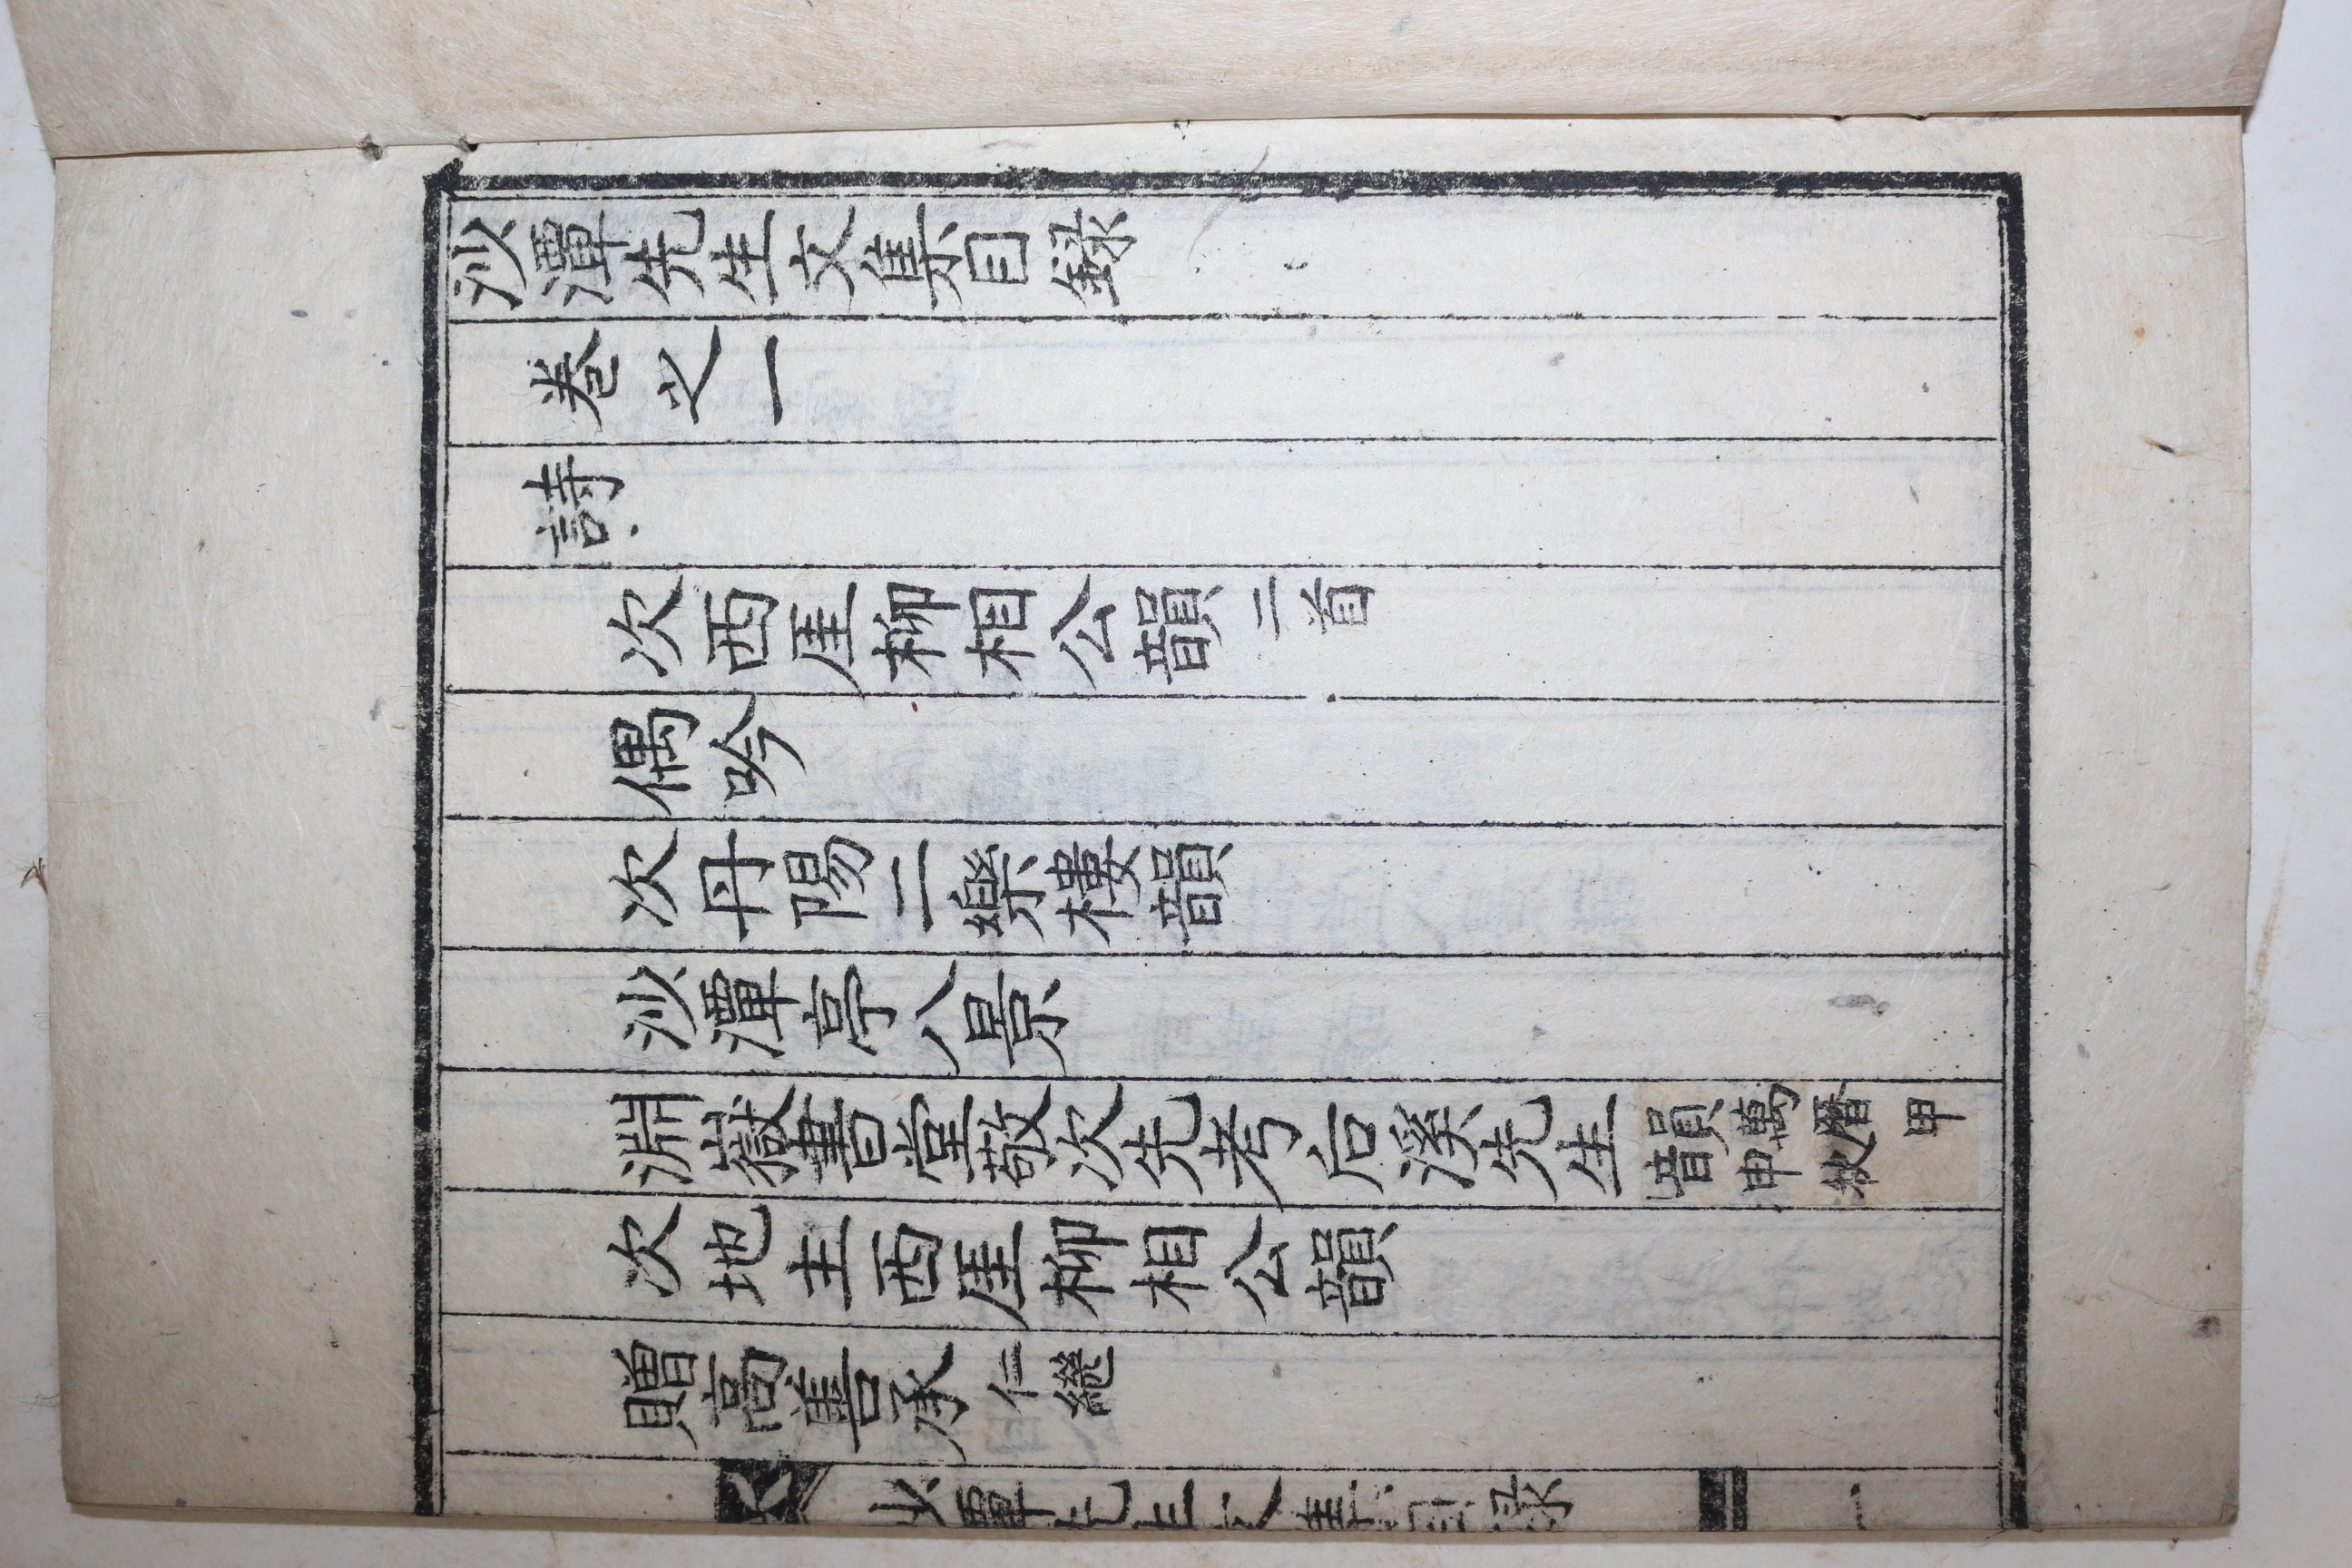 沙潭先生文集目錄
卷之一
詩
次西厓柳相公韻二首
偶吟
次丹陽二樂樓韻
沙潭亭八景
淵嶽書堂敬次先考后溪先生韻萬曆甲申秋
次地主西厓柳相公韻
贈高善承仁繼
沙潭先生文集目錄 一